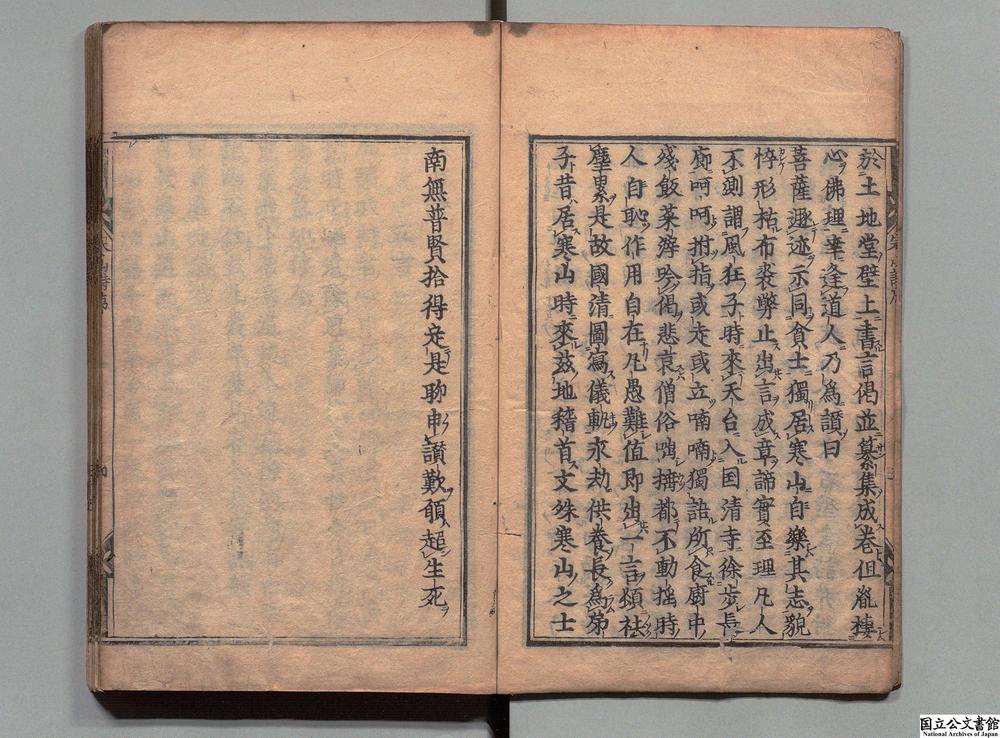 於土地堂壁上書言偈並纂集成卷但胤棲
心佛理幸逢道人乃爲讃曰
菩薩遯迹示同貧士獨居寒山自樂其志貌
悴形枯布裘弊止出言成章諦實至理凡人
不測謂風狂子時來天台入国清寺徐步長
廊呵呵拊指或走或立喃喃獨語所食廚中
殘飯菜滓吟偈悲哀僧俗咄捶都不動搖時
人自恥作用自在凡愚難値即出一言頃祛
塵累是故國清圖寫儀軌永劫供養長爲弟
子昔居寒山時來茲地稽首文殊寒山之士
南無普賢拾得定是聊申讃歎願超生死
国立公文書館
National Archives of Japan